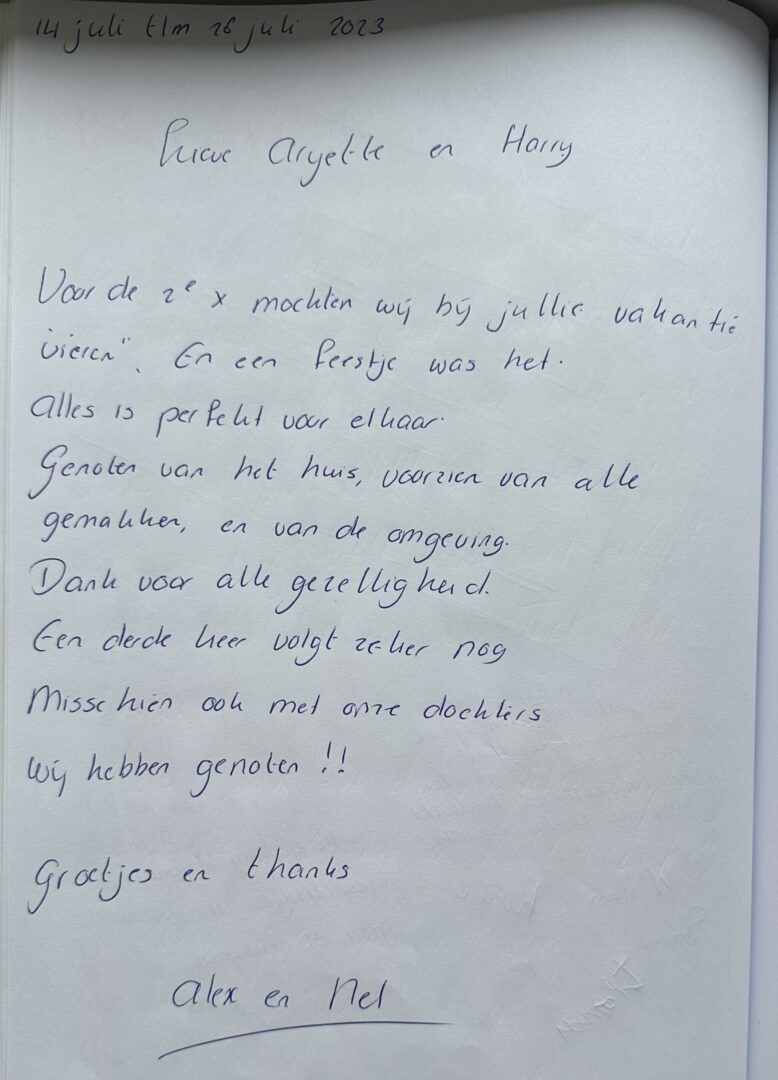 14 juli t/m 28 juli 2023
Lieve Aryette en Harry
Voor de 2e x mochten wij bij jullie vakantie
"vieren". En een feestje was het.
Alles is perfekt voor elkaar.
Genoten van het huis, voorzien van alle
gemakken, en van de omgeving.
Dank voor alle gezelligheid.
Een derde keer volgt zeker nog
Misschien ook met onze dochters
Wij hebben genoten !!
Groetjes en thanks
Alex en Nel